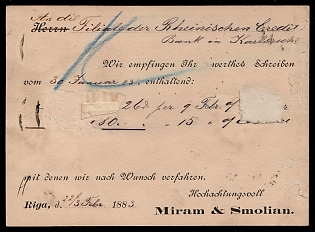 An die
Herrn Filiale der Rheinischen Credit
Bank in Karlsruhe
Wir empfingen Ihr werthes Schreiben
vom 30 Januar 83. enthaltend:
26d. per 9 Febr.
80. 15
mit denen wir nach Wunsch verfahren.
Hochachtungsvoll
Riga, d. 22/3 Febr. 1883.
Miram & Smolian.